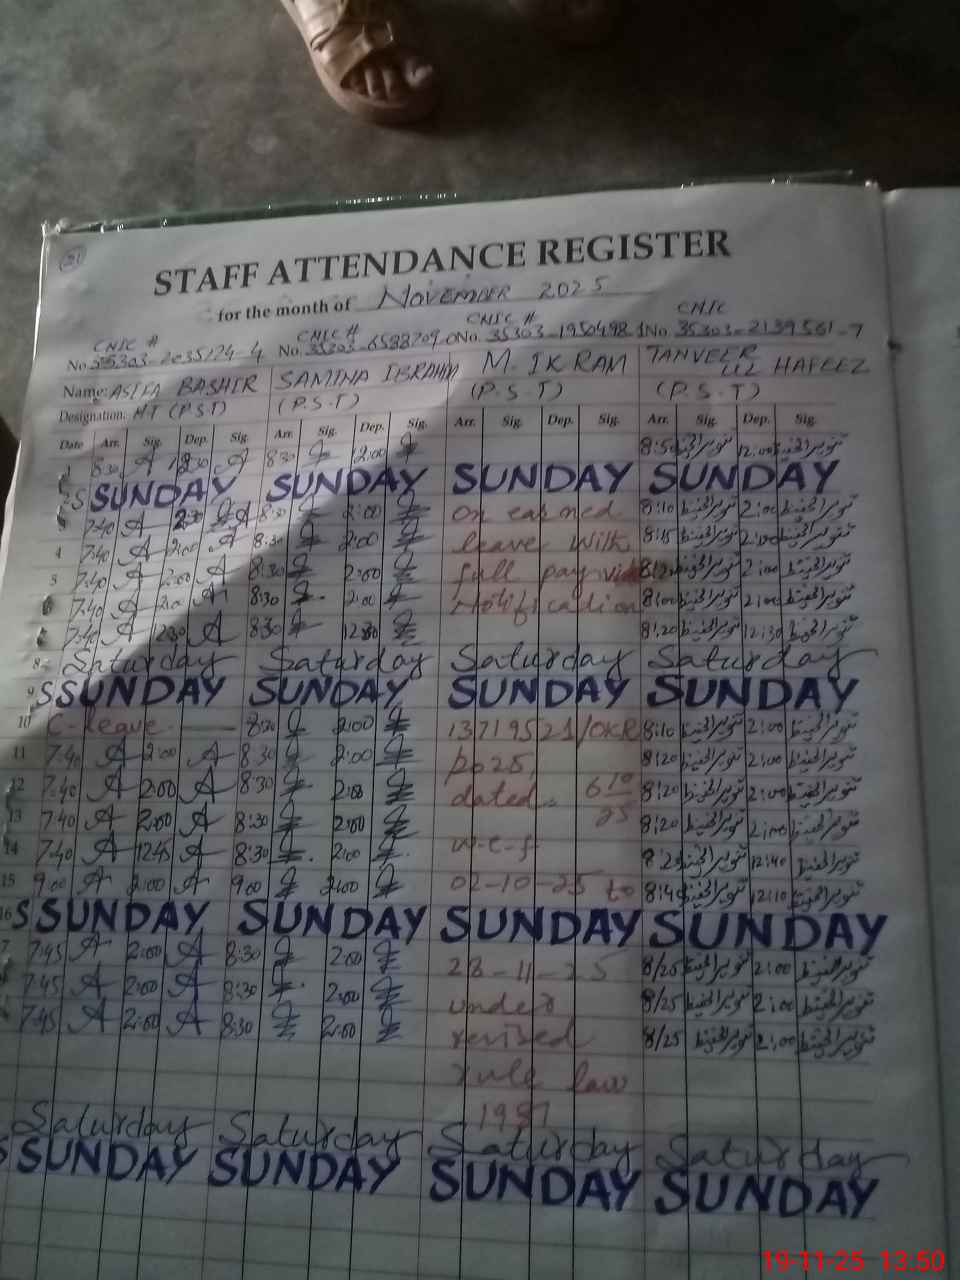 51
STAFF ATTENDANCE REGISTER
for the month of NOVEMBER 2025
CNIC # CNIC # CNIC # CNIC
No. 35303-2035124-4 No. 35303-6588709-0 No. 35303-1950498-1 No. 35303-2139561-7
Name: ASIFA BASHIR SAMINA IBRAHIM M. IKRAM TANVEER UL HAFEEZ
Designation: HT (P.S.T) (P.S.T) (P.S.T) (P.S.T)
Date Arr. Sig. Dep. Sig. Arr. Sig. Dep. Sig. Arr. Sig. Dep. Sig. Arr. Sig. Dep. Sig.
1 8:30 A 12:30 A 8:30 12:00 8:50 تنویر الحفیظ 12:00 تنویر الحفیظ
SUNDAY SUNDAY SUNDAY SUNDAY
7:40 A A 8:30 2:00 on earned 8:10 تنویر الحفیظ 2:00 تنویر الحفیظ
4 7:40 A 2:00 A 8:30 2:00 leave with 8:15 تنویر الحفیظ 2:00 تنویر الحفیظ
5 7:40 A 2:00 A 8:30 2:00 full pay vide تنویر الحفیظ 2:00 تنویر الحفیظ
6 7:40 A 2:00 A 8:30 2:00 Notification 8:00 تنویر الحفیظ 2:00 تنویر الحفیظ
7:40 A 12:30 A 8:30 12:30 8:20 تنویر الحفیظ 12:30 تنویر الحفیظ
8 Saturday Saturday Saturday Saturday
9 SUNDAY SUNDAY SUNDAY SUNDAY
10 C-leave 8:30 2:00 13719521/OKR 8:10 تنویر الحفیظ 2:00 تنویر الحفیظ
11 7:40 A 2:00 A 8:30 2:00 2025, 8:20 تنویر الحفیظ 2:00 تنویر الحفیظ
12 7:40 A 2:00 A 8:30 2:00 dated. 6 10 8:20 تنویر الحفیظ 2:00 تنویر الحفیظ
13 7:40 A 2:00 A 8:30 2:00 25 8:20 تنویر الحفیظ 2:00 تنویر الحفیظ
14 7:40 A 12:45 A 8:30 2:00 w-e-f 8:20 تنویر الحفیظ 12:40 تنویر الحفیظ
15 9:00 A 2:00 A 9:00 2:00 02-10-25 to 8:40 تنویر الحفیظ 12:10 تنویر الحفیظ
16 SUNDAY SUNDAY SUNDAY SUNDAY
7 7:45 A 2:00 A 8:30 2:00 28-11-25 8/25 تنویر الحفیظ 2:00 تنویر الحفیظ
7:45 A 2:00 A 8:30 2:00 under 8/25 تنویر الحفیظ 2:00 تنویر الحفیظ
7:45 A 2:00 A 8:30 2:00 revised 8/25 تنویر الحفیظ 2:00 تنویر الحفیظ
rule law
1981
Saturday Saturday Saturday Saturday
SUNDAY SUNDAY SUNDAY SUNDAY
19-11-25 13.50